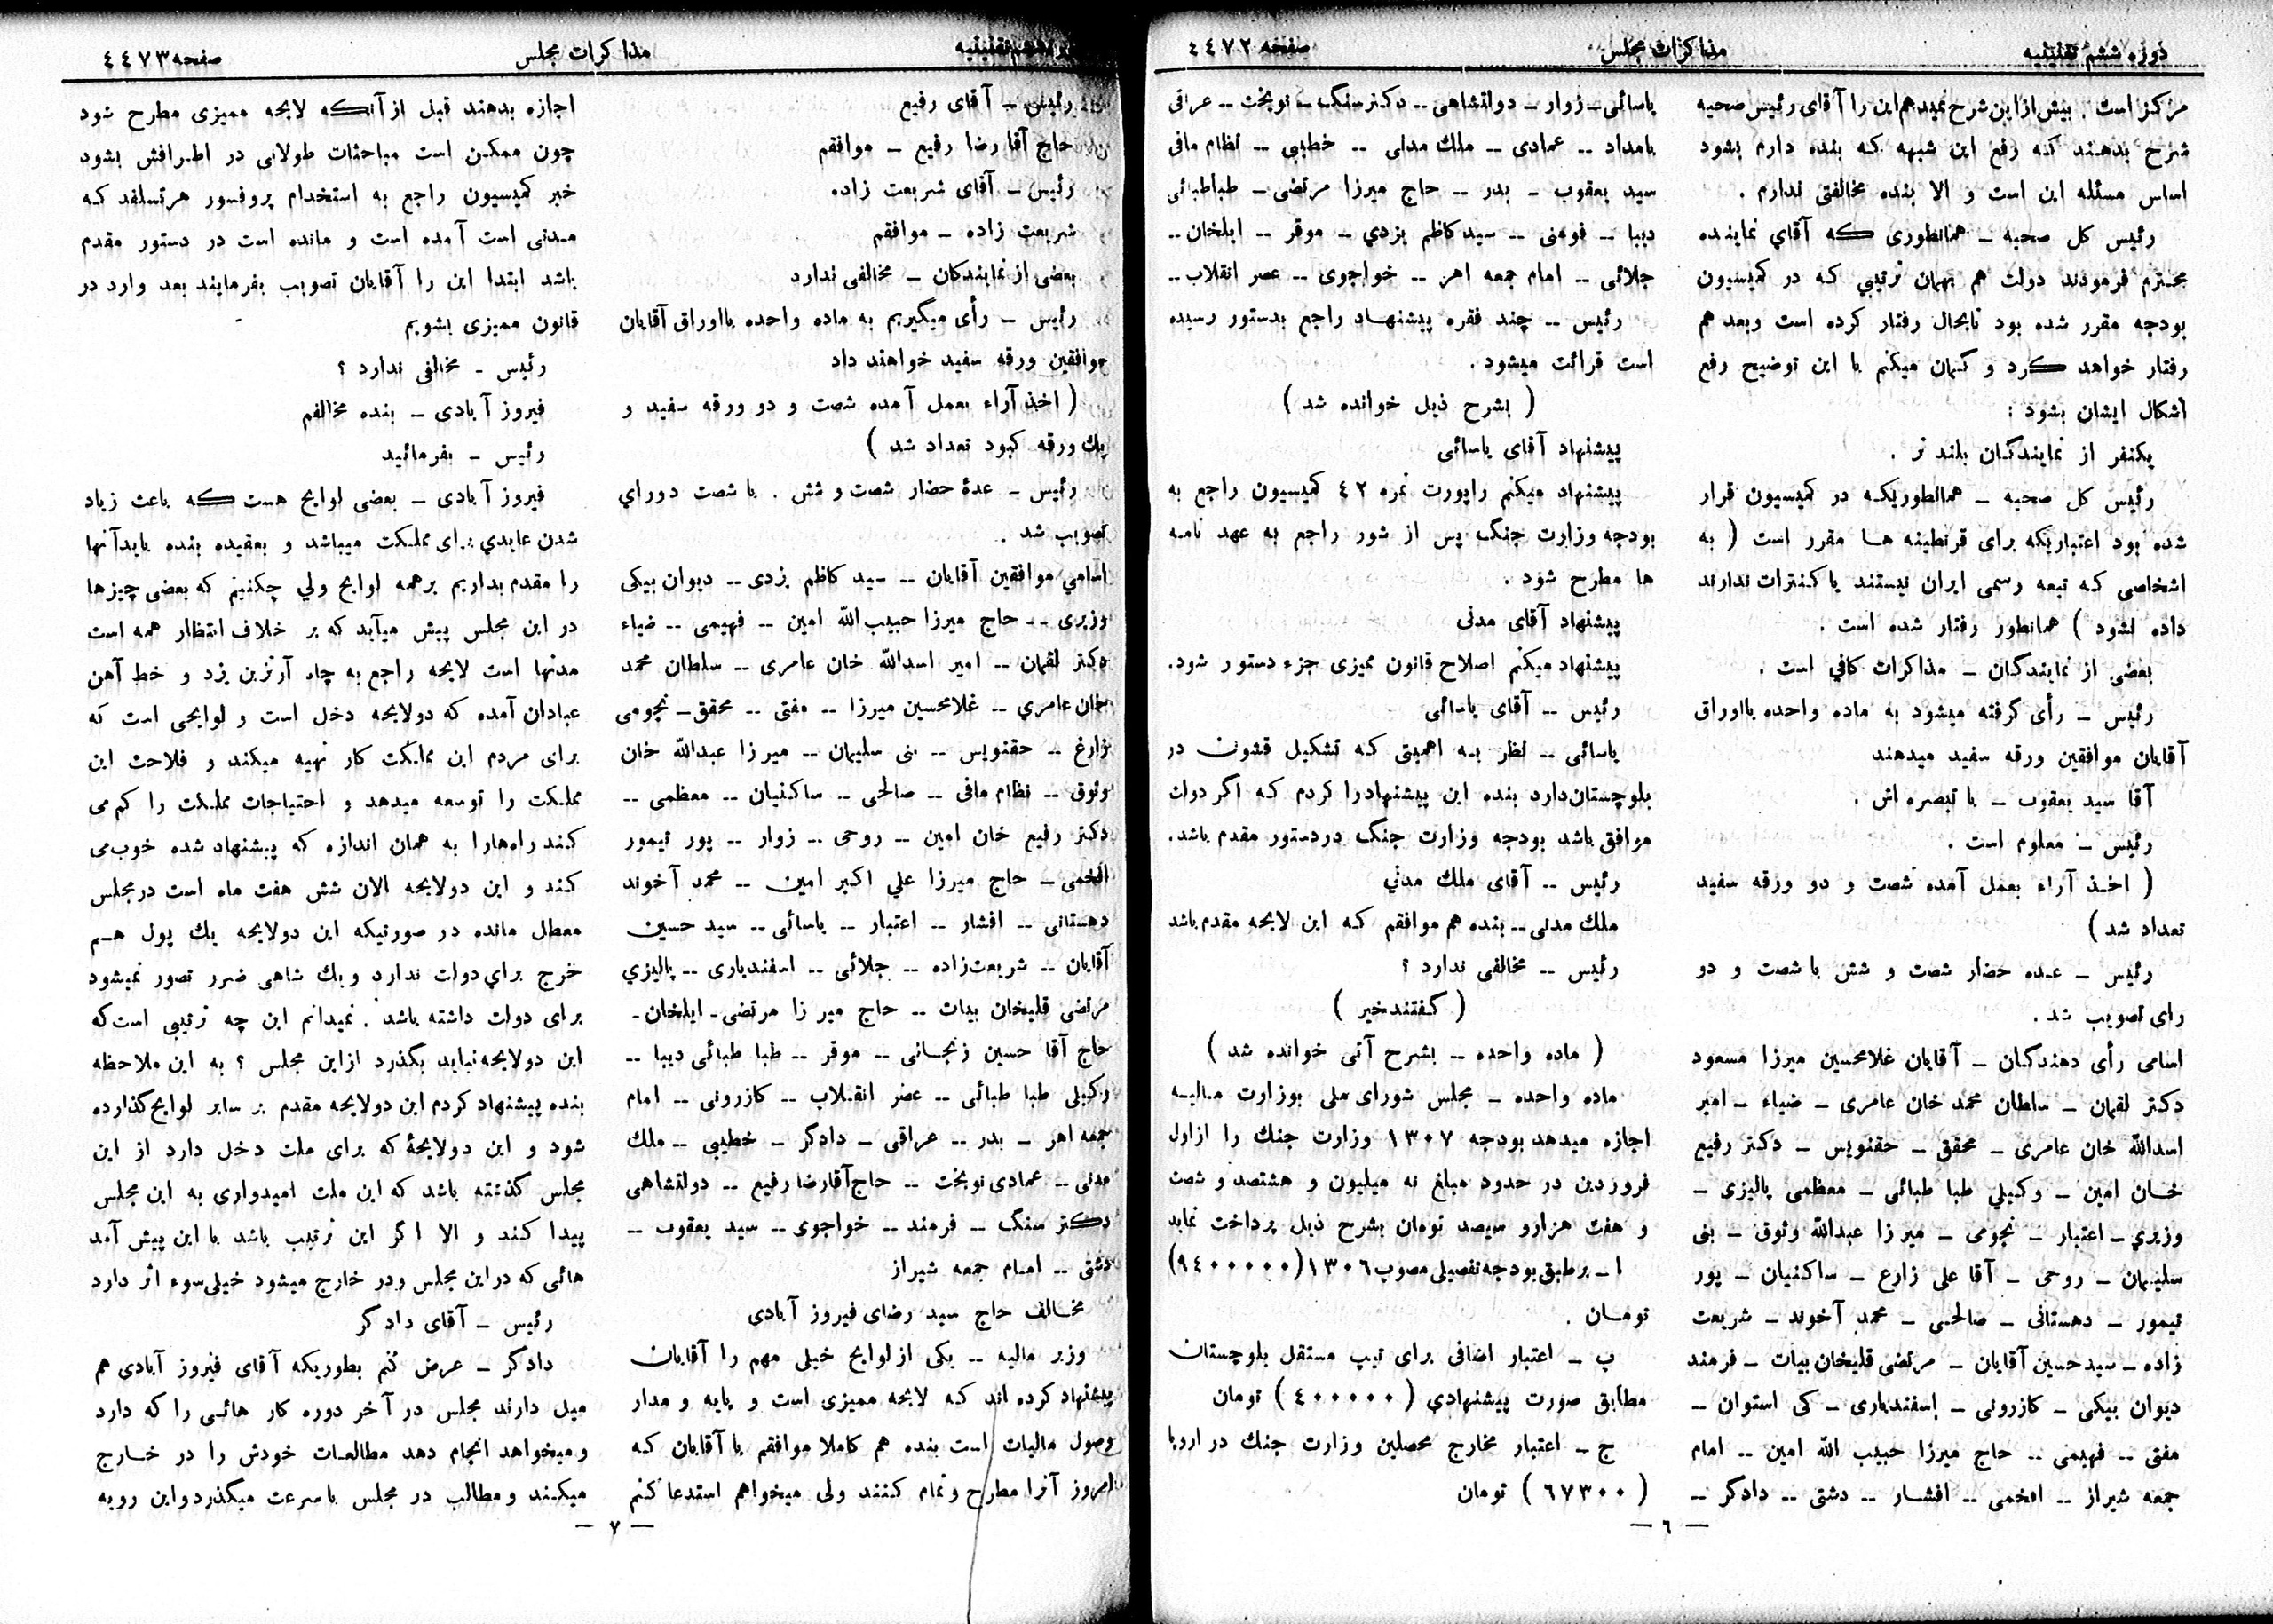 دوره ششم تقنینیه
مذاکرات مجلس
صفحه ٤٤٧٢
مرکز است . بیش از این شرح نمیدهم این را آقای رئیس صحیه
شرح بدهند که رفع این شبهه که بنده دارم بشود
اساس مسئله این است و الا بنده مخالفتی ندارم .
رئیس کل صحیه ــ همانطوری که آقای نماینده
محترم فرمودند دولت هم بهمان ترتیبی که در کمیسیون
بودجه مقرر شده بود تابحال رفتار کرده است و بعد هم
رفتار خواهد کرد و گمان میکنم با این توضیح رفع
اشکال ایشان بشود :
یکنفر از نمایندگان بلند تر .
رئیس کل صحیه ــ همانطوریکه در کمیسیون قرار
شده بود اعتباریکه برای قرنطینه ها مقرر است ( به
اشخاصی که تبعه رسمی ایران نیستند یا کنترات ندارند
داده نشود ) همانطور رفتار شده است .
بعضی از نمایندگان ــ مذاکرات کافی است .
رئیس ــ رأی گرفته میشود به ماده واحده با اوراق
آقایان موافقین ورقه سفید میدهند
آقا سید یعقوب ــ با تبصره اش .
رئیس ــ معلوم است .
( اخذ آراء بعمل آمده شصت و دو ورقه سفید
تعداد شد )
رئیس ــ عده حضار شصت و شش با شصت و دو
رای تصویب شد .
اسامی رأی دهندگان ــ آقایان غلامحسین میرزا مسعود
دکتر لقمان ــ سلطان محمد خان عامری ــ ضیاء ــ امیر
اسدالله خان عامری ــ محقق ــ حقنویس ــ دکتر رفیع
خان امین ــ وکیلی طبا طبائی ــ معظمی پالیزی ــ
وزیری ــ اعتبار ــ نجومی ــ میرزا عبدالله وثوق ــ بنی
سلیمان ــ روحی ــ آقا علی زارع ــ ساکنیان ــ پور
تیمور ــ دهستانی ــ صالحی ــ محمد آخوند ــ شریعت
زاده ــ سید حسین آقایان ــ مرتضی قلیخان بیات ــ فرمند
دیوان بیکی ــ کازرونی ــ اسفندیاری ــ کی استوان ــ
مفتی ــ فهیمی ــ حاج میرزا حبیب الله امین ــ امام
جمعه شیراز ــ افخمی ــ افشار ــ دشتی ــ دادگر ــ
یاسائی ــ زوار ــ دولتشاهی ــ دکتر سنگ ــ نوبخت ــ عراقی
بامداد ــ عمادی ــ ملك مدنی ــ خطیبی ــ نظام مافی
سید یعقوب ــ بدر ــ حاج میرزا مرتضی ــ طباطبائی
دیبا ــ فومنی ــ سید کاظم یزدي ــ موقر ــ ایلخان ــ
جلائی ــ امام جمعه اهر ــ خواجوی ــ عصر انقلاب ــ
رئیس ــ چند فقره پیشنهاد راجع بدستور رسیده
است قرائت میشود .
( بشرح ذیل خوانده شد )
پیشنهاد آقای یاسائی
پیشنهاد میکنم راپورت نمره ٤٢ کمیسیون راجع به
بودجه وزارت جنگ پس از شور راجع به عهد نامه
ها مطرح شود .
پیشنهاد آقای مدنی
پیشنهاد میکنم اصلاح قانون ممیزی جزء دستور شود .
رئیس ــ آقای یاسائی
یاسائی ــ نظر به اهمیتی که تشکیل قشون در
بلوچستان دارد بنده این پیشنهاد را کردم که اگر دولت
موافق باشد بودجه وزارت جنگ در دستور مقدم باشد .
رئیس ــ آقای ملك مدنی
ملك مدنی ــ بنده هم موافقم که این لایحه مقدم باشد
رئیس ــ مخالفی ندارد ؟
( گفتند خیر )
( ماده واحده ــ بشرح آتی خوانده شد )
ماده واحده ــ مجلس شورای ملی بوزارت مالیه
اجازه میدهد بودجه ١٣٠٧ وزارت جنك را از اول
فروردین در حدود مبلغ نه میلیون و هشتصد و شصت
و هفت هزار و سیصد تومان بشرح ذیل پرداخت نماید
ا ــ بر طبق بودجه تفصیلی مصوب ١٣٠٦ (٩٤٠٠٠٠٠)
تومان .
ب ــ اعتبار اضافی برای تیپ مستقل بلوچستان
مطابق صورت پیشنهادي ( ٤٠٠٠٠٠ ) تومان
ج ــ اعتبار مخارج محصلین وزارت جنك در اروپا
( ٦٧٣٠٠ ) تومان
— ٦ —
تقنینیه
مذاکرات مجلس
صفحه ٤٤٧٣
رئیس ــ آقای رفیع
حاج آقا رضا رفیع ــ موافقم
رئیس ــ آقای شریعت زاده
شریعت زاده ــ موافقم
بعضی از نمایندگان ــ مخالفی ندارد
رئیس ــ رأی میگیریم به ماده واحده با اوراق آقایان
موافقین ورقه سفید خواهند داد
( اخذ آراء بعمل آمده شصت و دو ورقه سفید و
یك ورقه کبود تعداد شد )
رئیس ــ عدۀ حضار شصت و شش . با شصت دو راي
تصویب شد .
اسامي موافقین آقایان ــ سید کاظم یزدی ــ دیوان بیکی
وزیری ــ حاج میرزا حبیب الله امین ــ فهیمی ــ ضیاء
دکتر لقمان ــ امیر اسدالله خان عامری ــ سلطان محمد
خان عامري ــ غلامحسین میرزا ــ مفتی ــ محقق ــ نجومی
زارع ــ حقنویس ــ بنی سلیمان ــ میرزا عبدالله خان
وثوق ــ نظام مافی ــ صالحی ــ ساکنیان ــ معظمی ــ
دکتر رفیع خان امین ــ روحی ــ زوار ــ پور تیمور
افخمی ــ حاج میرزا علي اکبر امین ــ محمد آخوند
دهستانی ــ افشار ــ اعتبار ــ یاسائی ــ سید حسین
آقایان ــ شریعت زاده ــ جلائی ــ اسفندیاری ــ پالیزي
مرتضی قلیخان بیات ــ حاج میرزا مرتضی ــ ایلخان ــ
حاج آقا حسین زنجانی ــ موقر ــ طبا طبائی دیبا ــ
وکیلی طبا طبائی ــ عصر انقلاب ــ کازرونی ــ امام
جمعه اهر ــ بدر ــ عراقی ــ دادگر ــ خطیبی ــ ملك
مدنی ــ عمادی نوبخت ــ حاج آقا رضا رفیع ــ دولتشاهی
دکتر سنگ ــ فرمند ــ خواجوی ــ سید یعقوب ــ
دشتی ــ امام جمعه شیراز
مخالف حاج سید رضای فیروز آبادی
وزیر مالیه ــ یکی از لوایح خیلی مهم را آقایان
پیشنهاد کرده اند که لایحه ممیزی است و پایه و مدار
وصول مالیات است بنده هم کاملا موافقم با آقایان که
امروز آنرا مطرح و تمام کنند ولی میخواهم استدعا کنم
اجازه بدهند قبل از آنکه لایحه ممیزی مطرح شود
چون ممکن است مباحثات طولانی در اطرافش بشود
خبر کمیسیون راجع به استخدام پروفسور هرتسلفد که
مدتی است آمده است و مانده است در دستور مقدم
باشد ابتدا این را آقایان تصویب بفرمایند بعد وارد در
قانون ممیزی بشویم
رئیس ــ مخالفی ندارد ؟
فیروز آبادی ــ بنده مخالفم
رئیس ــ بفرمائید
فیروز آبادی ــ بعضی لوایح هست که باعث زیاد
شدن عایدي برای مملکت میباشد و بعقیده بنده باید آنها
را مقدم بداریم بر همه لوایح ولي چکنیم که بعضی چیزها
در این مجلس پیش میآید که بر خلاف انتظار همه است
مدتها است لایحه راجع به چاه آرتزین یزد و خط آهن
عبادان آمده که دولایحه دخل است و لوایحی است که
برای مردم این مملکت کار تهیه میکند و فلاحت این
مملکت را توسعه میدهد و احتیاجات مملکت را کم می
کند راه‌ها را به همان اندازه که پیشنهاد شده خوب می
کند و این دولایحه الان شش هفت ماه است در مجلس
معطل مانده در صورتیکه این دولایحه یك پول هم
خرج براي دولت ندارد و یك شاهی ضرر تصور نمیشود
برای دولت داشته باشد . نمیدانم این چه ترتیبی است که
این دولایحه نباید بگذرد از این مجلس ؟ به این ملاحظه
بنده پیشنهاد کردم این دولایحه مقدم بر سایر لوایح گذارده
شود و این دولایحۀ که برای ملت دخل دارد از این
مجلس گذشته باشد که این ملت امیدواری به این مجلس
پیدا کند و الا اگر این ترتیب باشد با این پیش آمد
هائی که در این مجلس و در خارج میشود خیلی سوء اثر دارد
رئیس ــ آقای دادگر
دادگر ــ عرض کنم بطوریکه آقای فیروز آبادی هم
میل دارند مجلس در آخر دوره کار هائی را که دارد
و میخواهد انجام دهد مطالعات خودش را در خارج
میکند و مطالب در مجلس با سرعت میگذرد و این رویه
— ٧ —